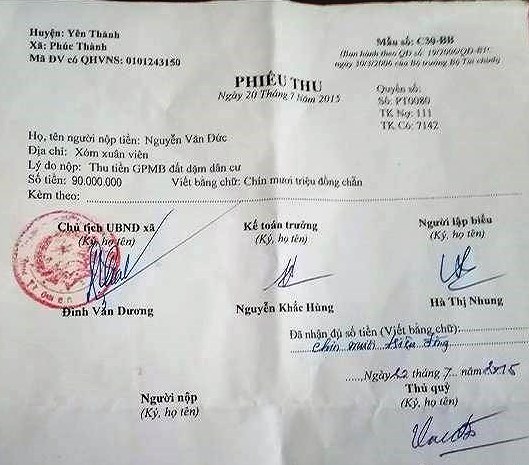 Huyện: Yên Thành
Xã: Phúc Thành
Mã ĐV có QHVNS: 0101243150
Mẫu số: C30-BB
(Ban hành theo QĐ số: 19/2006/QĐ-BTC
ngày 30/3/2006 của Bộ trưởng Bộ Tài chính)
PHIẾU THU
Ngày 20 Tháng 7 năm 2015
Quyển số:
Số: PT0080
TK Nợ: 111
TK Có: 7142
Họ, tên người nộp tiền: Nguyễn Văn Đức
Địa chỉ: Xóm xuân viên
Lý do nộp: Thu tiền GPMB đất dặm dân cư
Số tiền: 90.000.000 Viết bằng chữ: Chín mươi triệu đồng chẵn
Kèm theo:
Chủ tịch UBND xã Kế toán trưởng Người lập biểu
(Ký, họ tên) (Ký, họ tên) (Ký, họ tên)
Đinh Văn Dương Nguyễn Khắc Hùng Hà Thị Nhung
Đã nhận đủ số tiền (Viết bằng chữ):
Chín mươi triệu đồng
Ngày 22 tháng 7 năm 2015
Người nộp Thủ quỹ
(Ký, họ tên) (Ký, họ tên)